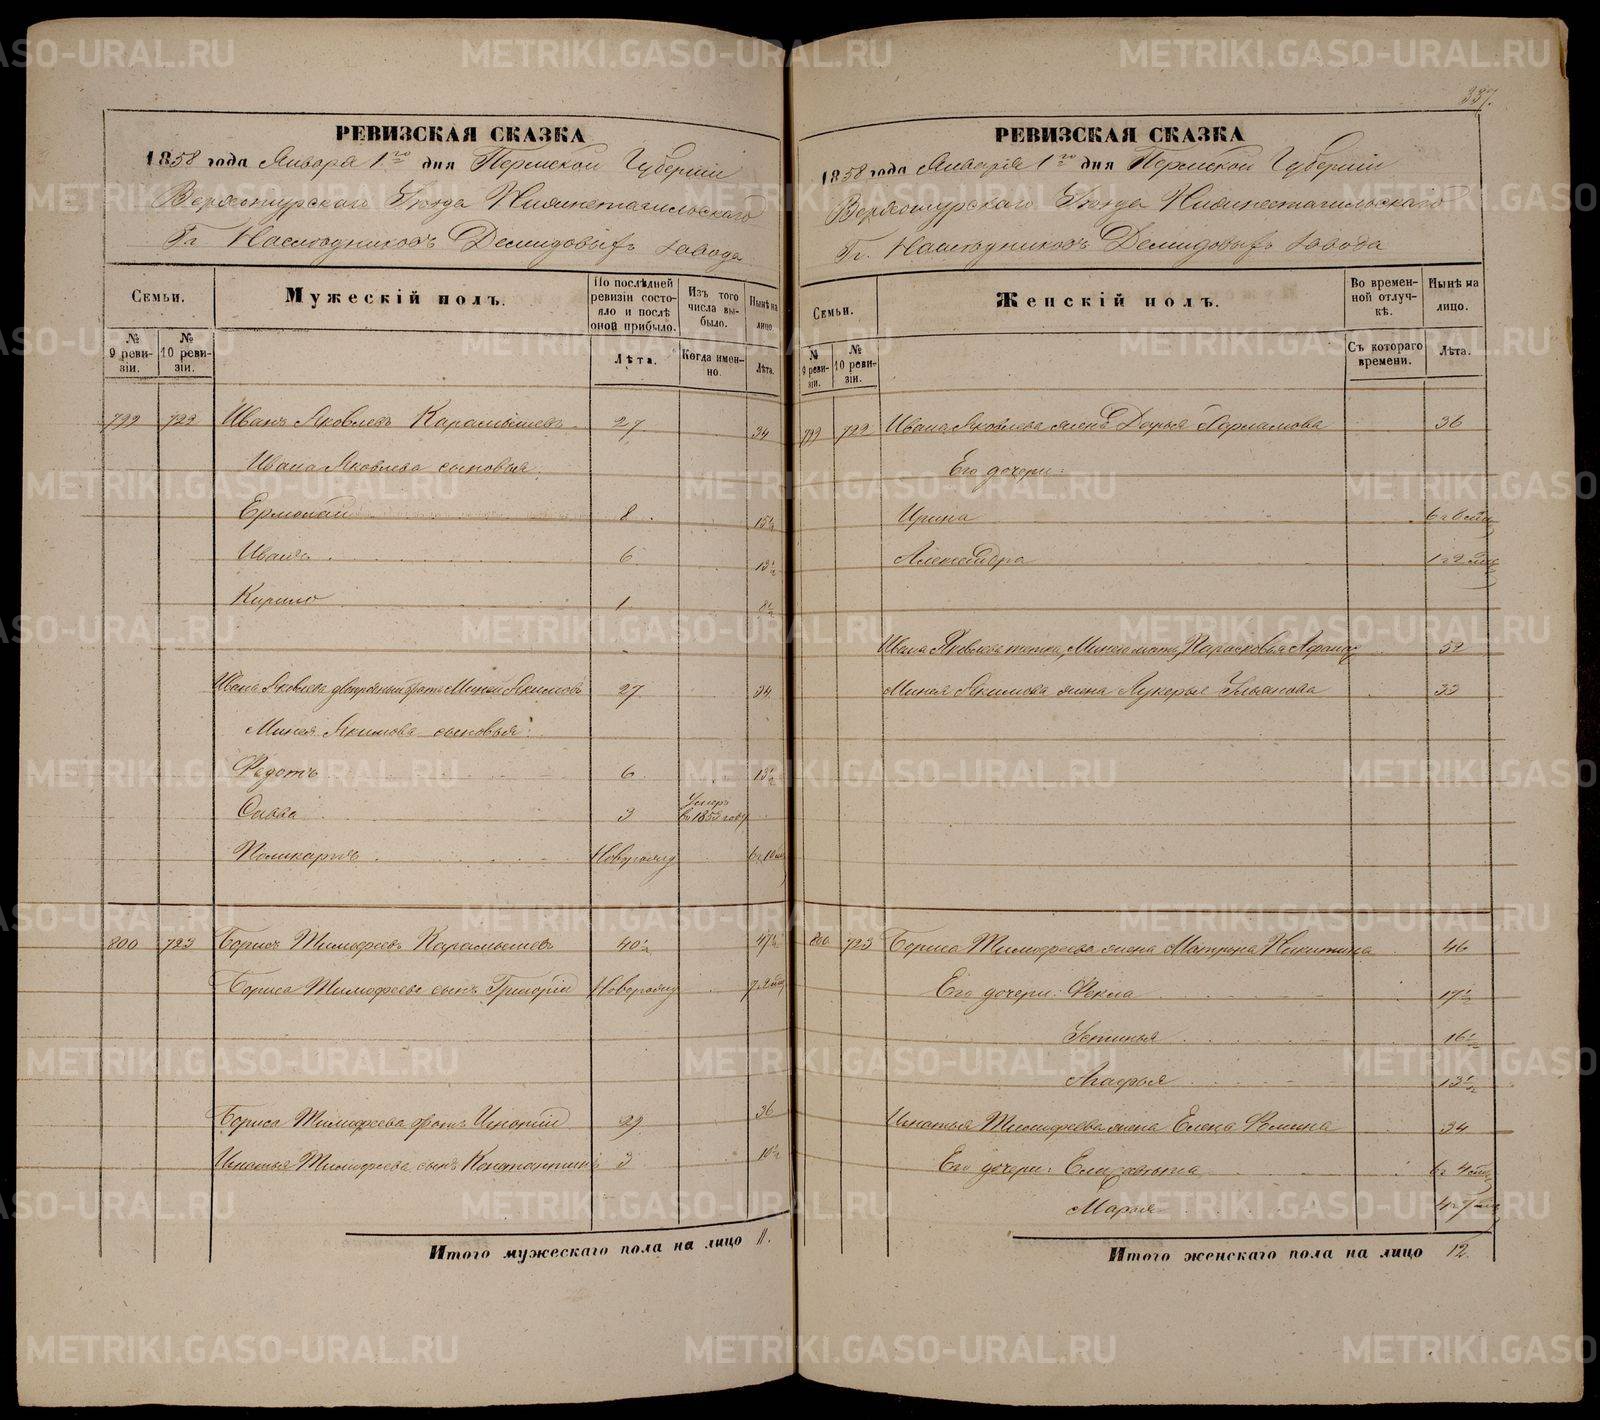 337.
РЕВИЗСКАЯ СКАЗКА
1858 года Января 1го дня Пермской Губернiи
Верхотурскаго Уѣзда Нижнетагильскаго
Гг Наслѣдниковъ Демидовыхъ Завода
Семьи.
№ 9 ревизiи.
№ 10 ревизiи.
Мужескiй полъ.
По послѣдней ревизiи состояло и послѣ оной прибыло.
Лѣта.
Изъ того числа выбыло.
Когда именно.
Нынѣ на лицо
Лѣта.
799 722 Иванъ Яковлевъ Карамышевъ 27 34
Ивана Яковлева сыновья:
Ермолай 8 15½
Иванъ 6 13½
Кирило 1 8½
Ивана Яковлева двоюродный братъ Миней Якимовъ 27 34
Минея Якимова сыновья:
Федотъ 6 13½
Савва 3 Умеръ въ 185 году
Поликарпъ Новорожд 6 г 10 м
800 723 Борисъ Тимофеевъ Карамышевъ 40½ 47½
Бориса Тимофеева сынъ Григорiй Новорожд 7
Бориса Тимофеева братъ Игнатiй 29 36
Игнатья Тимофеева сынъ Константинъ 3 10½
Итого мужескаго пола на лицо 11.
РЕВИЗСКАЯ СКАЗКА
1858 года Января 1го дня Пермской Губернiи
Верхотурскаго Уѣзда Нижнетагильскаго
Гг. Наслѣдниковъ Демидовыхъ Завода
Семьи.
№ 9 ревизiи.
№ 10 ревизiи.
Женскiй полъ.
Во временной отлучкѣ.
Съ котораго времени.
Нынѣ на лицо.
Лѣта.
799 722 Ивана Яковлева жена Дарья Варламова 36
Его дочери:
Ирина 6 г 6 мѣс
Александра 1 г 2 мѣс
Ивана Яковлева тетка, Минея мать, Парасковья Афанас 52
Минея Якимова жена Лукерья Ульянова 33
800 723 Бориса Тимофеева жена Матрена Никитина 46
Его дочери: Фекла 17½
Устинья 16½
Агафья 13½
Игнатья Тимофеева жена Елена Фомина 34
Его дочери: Елизавета 6 г 4 мѣс
Марья 4 г 7 мѣс
Итого женскаго пола на лицо 12.
METRIKI.GASO-URAL.RU